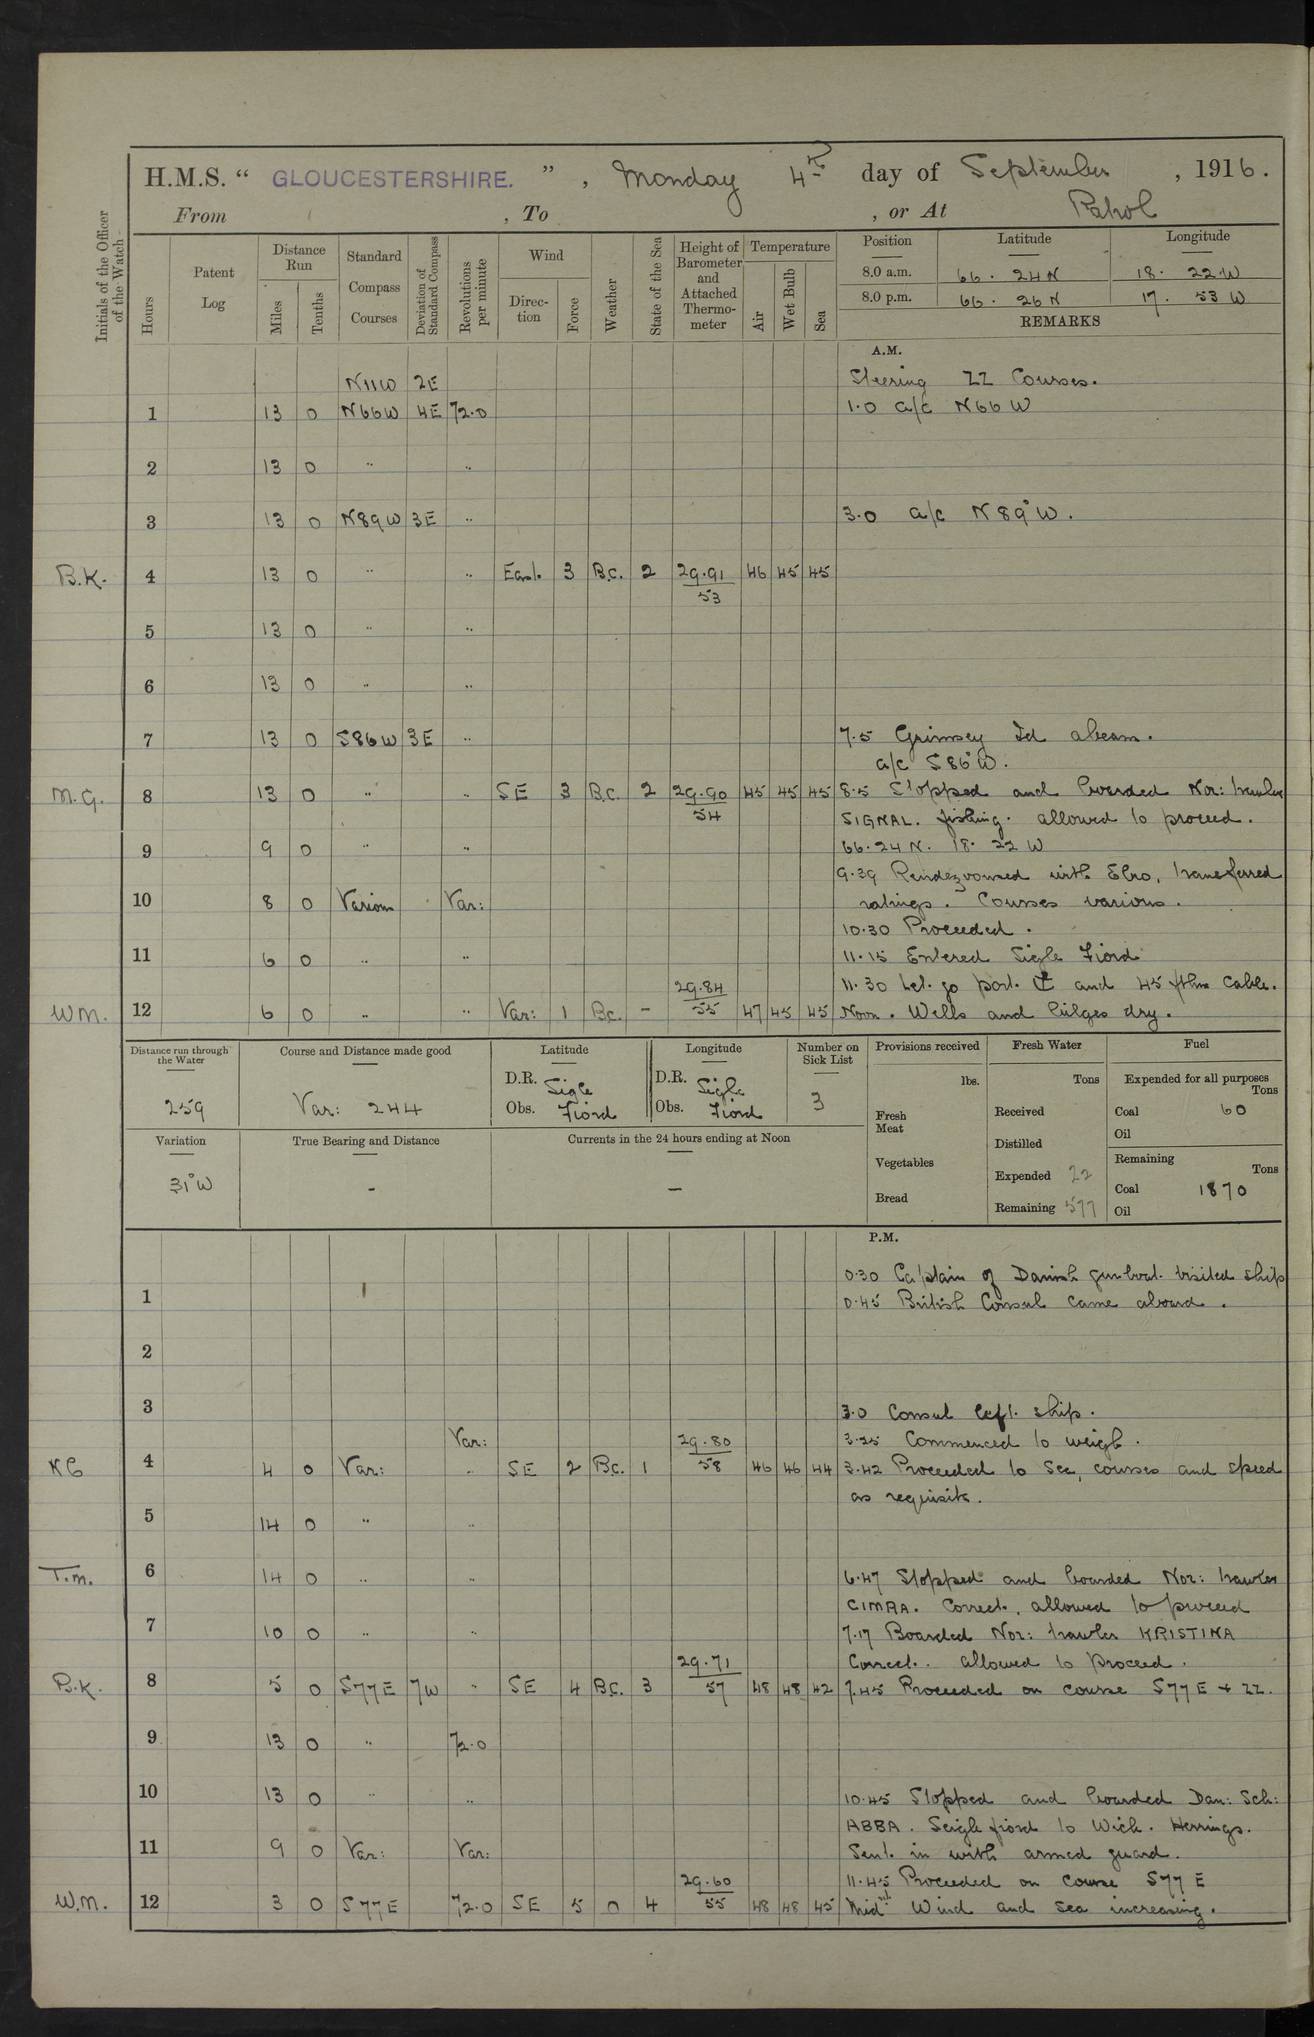 H.M.S. “ GLOUCESTERSHIRE. ” , Monday 4th day of September , 1916.
From , To , or At Patrol
Initials of the Officer of the Watch
Hours
Patent Log
Distance Run
Miles
Tenths
Standard Compass Courses
Deviation of Standard Compass
Revolutions per minute
Wind
Direction
Force
Weather
State of the Sea
Height of Barometer and Attached Thermometer
Temperature
Air
Wet Bulb
Sea
Position Latitude Longitude
8.0 a.m. 66. 24 N 18. 22 W
8.0 p.m. 66. 26 N 17. 53 W
REMARKS
A.M.
N11W 2E Steering ZZ Courses.
1 13 0 N66W 4E 72.0 1.0 a/c N66W
2 13 0 " "
3 13 0 N89W 3E " 3.0 a/c N89°W.
B.K. 4 13 0 " " East. 3 B.C. 2 29.91/53 46 45 45
5 13 0 " "
6 13 0 " "
7 13 0 S86W 3E " 7.5 Grimsey Id abeam.
a/c S86°W.
M.G. 8 13 0 " " SE 3 B.C. 2 29.90/54 45 45 45 8.5 Stopped and boarded Nor: trawler
SIGNAL. fishing. allowed to proceed.
9 9 0 " " 66.24 N. 18. 22 W
9.39 Rendezvoused with Ebro, transferred
10 8 0 Various Var: ratings. Courses various.
10.30 Proceeded.
11 6 0 " " 11.15 Entered Sigle Fiord
11.30 Let go port ⚓ and 45 fthms cable.
WM. 12 6 0 " " Var: 1 Bc. - 29.84/55 47 45 45 Noon. Wells and bilges dry.
Distance run through the Water
259
Course and Distance made good
Var: 244
Latitude
D.R. Sigle
Obs. Fiord
Longitude
D.R. Sigle
Obs. Fiord
Number on Sick List
3
Provisions received
lbs.
Fresh Meat
Vegetables
Bread
Fresh Water
Tons
Received
Distilled
Expended 22
Remaining 577
Fuel
Expended for all purposes
Tons
Coal 60
Oil
Remaining
Tons
Coal 1870
Oil
Variation
31°W
True Bearing and Distance
-
Currents in the 24 hours ending at Noon
-
P.M.
0.30 Captain of Danish gunboat visited ship
1 0.45 British Consul came aboard.
2
3 3.0 Consul left ship.
Var: 3.25 Commenced to weigh.
KC 4 4 0 Var: " SE 2 Bc. 1 29.80/58 46 46 44 3.42 Proceeded to Sea, courses and speed
as requisite.
5 14 0 " "
T.m. 6 14 0 " " 6.47 Stopped and boarded Nor: trawler
CIMRA. Correct, allowed to proceed
7 10 0 " " 7.17 Boarded Nor: trawler KRISTINA
Correct. allowed to proceed.
B.K. 8 5 0 S77E 7W " SE 4 B.C. 3 29.71/57 48 48 42 7.45 Proceeded on course S77E + ZZ.
9 13 0 " 72.0
10 13 0 " " 10.45 Stopped and boarded Dan: Sch:
ABBA. Seigle fiord to Wick. Herrings.
11 9 0 Var: Var: Sent in with armed guard.
11.45 Proceeded on course S77E
W.M. 12 3 0 S77E 72.0 SE 5 0 4 29.60/55 48 48 45 Midnt Wind and Sea increasing.